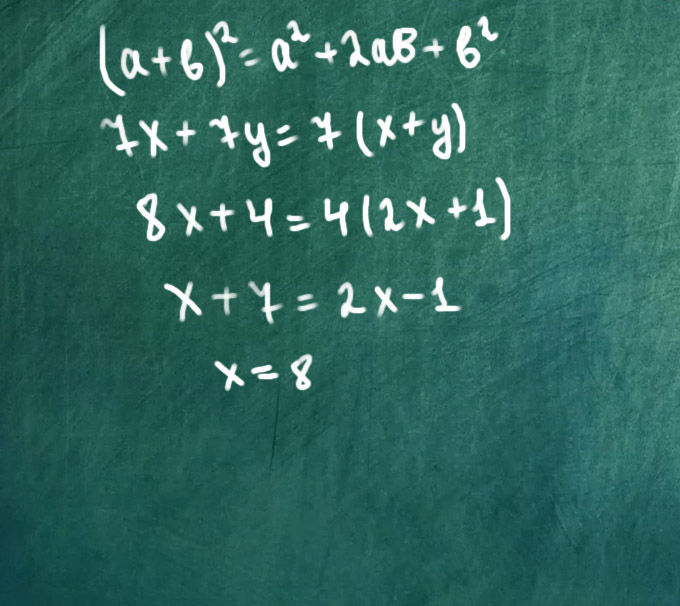 (a+b)²=a²+2ab+b²
7x+7y=7(x+y)
8x+4=4(2x+1)
x+7=2x-1
x=8